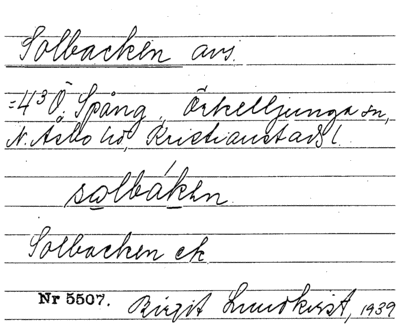 Solbacken avs.
=4³ Ö. Spång, Örkelljunga sn,
N. Åsbo hd, Kristianstads l.
sọlbáken
Solbacken ek
Nr 5507. Birgit Lundkvist, 1939